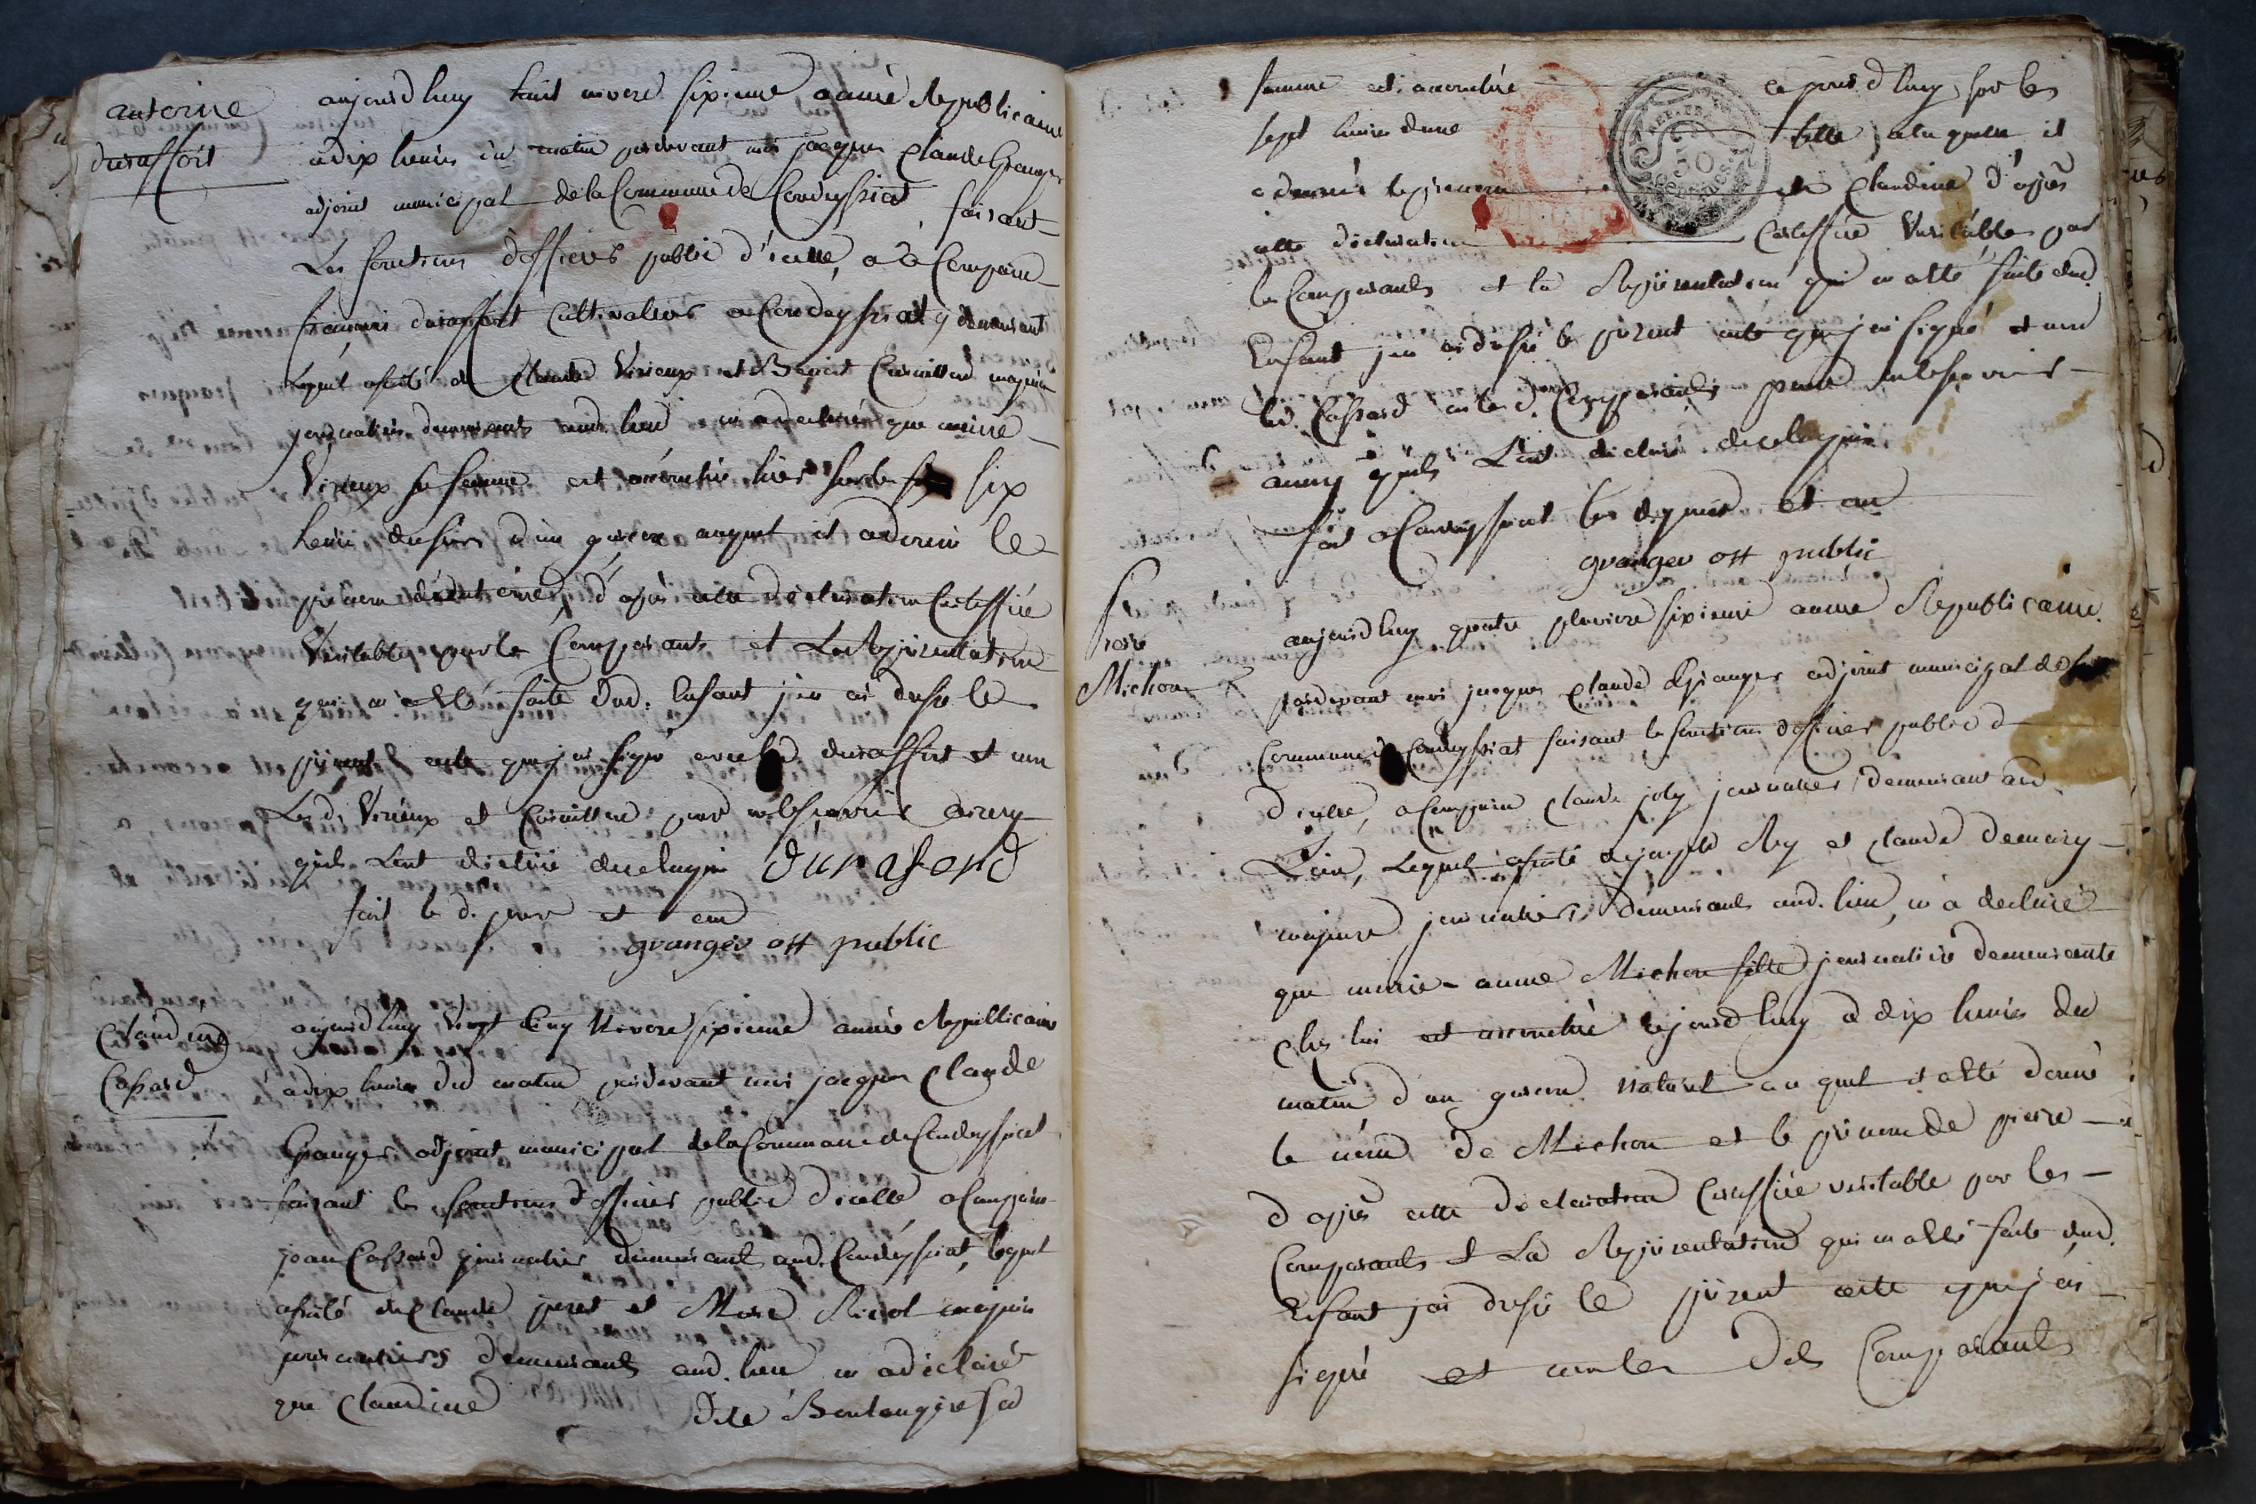 antoine
duraffort
aujourd huy huit nivose sixieme année Republicaine
a dix heures du matin pardevant moi jacques Claude Granger
adjoint municipal de la Commune de Condeyssiat faisant
Les fonctions d'officier public d'icelle, a Comparu
françois duraffort Cultivateur a Condeyssiat y demeurant
Lequel assisté de Claude Virieux et Benoit majeurs
journaliers demeurants aud. lieu m a declaré que
Virieux sa femme est accouchée hier sur les six
heures du soir d'un garçon auquel il a donné le
prenom d'antoine, d'après cette declaration Certiffiée
Veritable par les Comparants et La Representation
qui m'a etté faite dud. Enfant j'en ai dressé le
présent acte que j'ai signé avec led. duraffort et non
Les d. Virieux et pour ne le sçavoir
qu'ils ont declaré de ce enquis durafond
fait le d. jour et an
granger off public
Claudine
Cassard
aujourd huy Vingt Cinq Nivose sixieme année Republicaine
à dix heures du matin pardevant moi jacques Claude
Granger adjoint municipal de la Commune de Condeyssiat
faisant les fonctions d'officier public d'icelle a Comparu
jean Cassard journalier demeurant aud. Condeyssiat, lequel
assisté de Claude peret et majeurs
journaliers demeurants aud. lieu m a déclaré
que Claudine Boulanger sa
femme est accouchée ce jourd huy sur les
sept heures d'une fille a laquelle il
a donné le prenom de Claudine d'après
cette declaration Certiffiée Veritable par
les Comparants et la Representation qui m'a etté faite dud.
Enfant j'en ai dressé le présent acte que j'ai signé et non
led. Cassard ni les d. Comparants pour ne le sçavoir
qu'ils L'ont declaré de ce enquis
fait a Condeyssiat les d. jour et an
granger off public
pierre
Michon
aujourd huy quatre pluviose sixieme année Republicaine
pardevant moi jacques Claude Granger adjoint municipal de la
Commune de Condeyssiat faisant les fonctions d'officier public d
d'icelle, a Comparu Claude joly journalier demeurant aud.
Lieu, Lequel assisté de joseph Rey et Claude
majeurs journaliers demeurants aud. lieu, m'a declaré
que marie-anne Michon fille journaliere demeurante
Chez lui est accouchée ce jourd huy a dix heures du
matin d'un garçon naturel auquel il a etté donné
le nom de Michon et le prenom de pierre
d'après cette declaration Certiffiée veritable par les
Comparants et La Representation qui m'a etté faite dud.
Enfant j'ai dressé le présent acte que j'ai
signé et non les dits Comparants